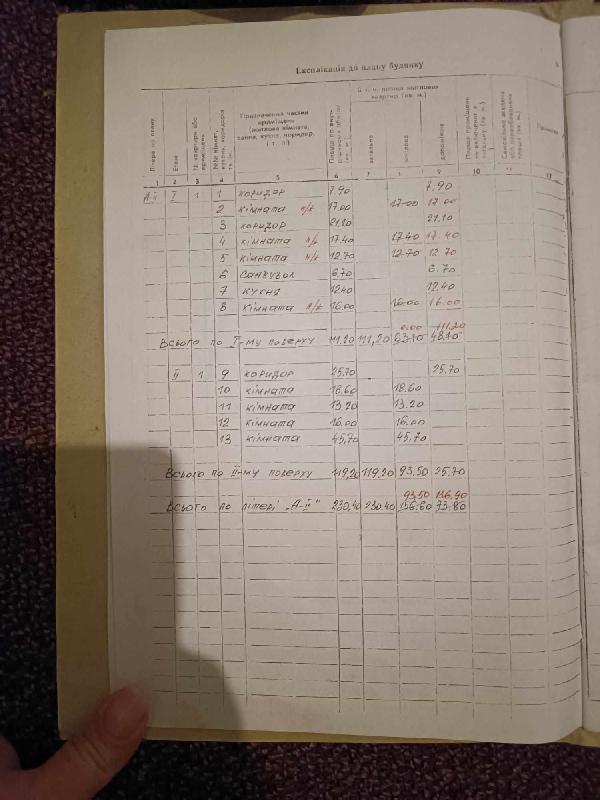 Експлікація до плану будинку
Літера по плану
Етаж
№ квартири або приміщення
№№ кімнат, кухонь, коридорів і т. п.
Призначення частин приміщення (житлова кімната, ванна, кухня, коридор, і т. п.)
Площа по внутр.
В т. ч. площа житлових квартир (кв. м.)
загальна
житлова
допоміжна
1 2 3 4 5 6 7 8 9 10 11 12
А-ІІ І 1 1 коридор 7.90 7.90
2 кімната н/ж 17.00 17.00 17.00
3 коридор 21.10 21.10
4 кімната н/ж 17.40 17.40 17.40
5 кімната н/ж 12.70 12.70 12.70
6 санвузол 6.70 6.70
7 кухня 12.40 12.40
8 кімната н/ж 16.00 16.00 16.00
0.00 111.20
Всього по І-му поверху 111.20 111,20 63.10 48.10
ІІ 1 9 коридор 25.70 25.70
10 кімната 18.60 18.60
11 кімната 13.20 13.20
12 кімната 16.00 16.00
13 кімната 45,70 45,70
Всього по ІІ-му поверху 119,20 119.20 93.50 25.70
93.50 136.90
Всього по літері „А-ІІ" 230,40 230.40 156.60 73.80